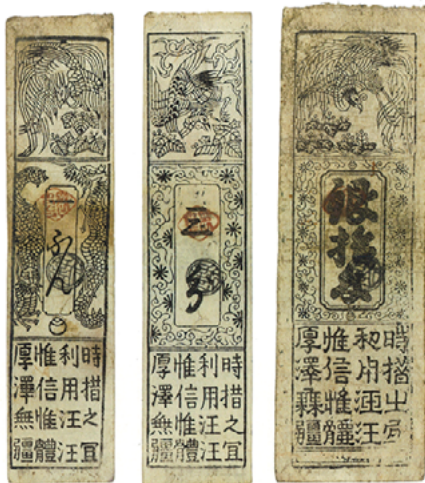 時措之宜
利用汪汪
惟信惟體
厚澤無疆
時措之宜
利用汪汪
惟信惟體
厚澤無疆
銀拾匁
時措之宜
惟信惟體
厚澤無疆